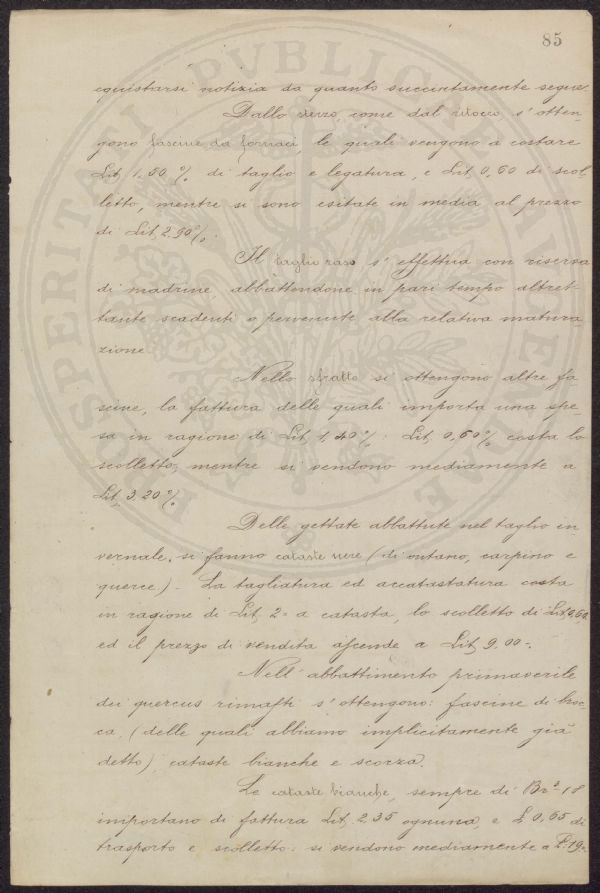 85
cquistarsi notizia da quanto succintamente segue.
Dallo sterzo, come dal ritocco, s'otten-
gono fascine da fornaci, le quali vengono a costare
Lit, 1,50 % di taglio e legatura, e Lit, 0,60 di scol-
letto, mentre si sono esitate in media al prezzo
di Lit, 2.90 %.
Il taglio raso s'effettua con riserva
di madrine, abbattendone in pari tempo altret-
tante scadenti o pervenute alla relativa matura-
zione.
Nello sfratto si ottengono altre fa
scine, la fattura delle quali importa una spe-
sa in ragione di Lit, 1,40 %: Lit, 0,60 % costa lo
scolletto, mentre si vendono mediamente a
Lit, 3,20 %.
Delle gettate abbattute nel taglio in
vernale, si fanno cataste nere (di ontano, carpino e
querce). La tagliatura ed accatastatura costa
in ragione di Lit, 2 = a catasta, lo scolletto di Lit, 0,60
ed il prezzo di vendita ascende a Lit, 9.00 =.
Nell'abbattimento primaverile
dei quercus rimasti s'ottengono: fascine di broc-
ca, (delle quali abbiamo implicitamente già
detto) cataste bianche e scorza.
Le cataste bianche, sempre di Br.³ 18
importano di fattura Lit, 2.35 ognuna, e £ 0,65 di
trasporto e scolletto: si vendono mediamente a £ 19=
PROSPERITATI PVBLICAE AVGENDAE